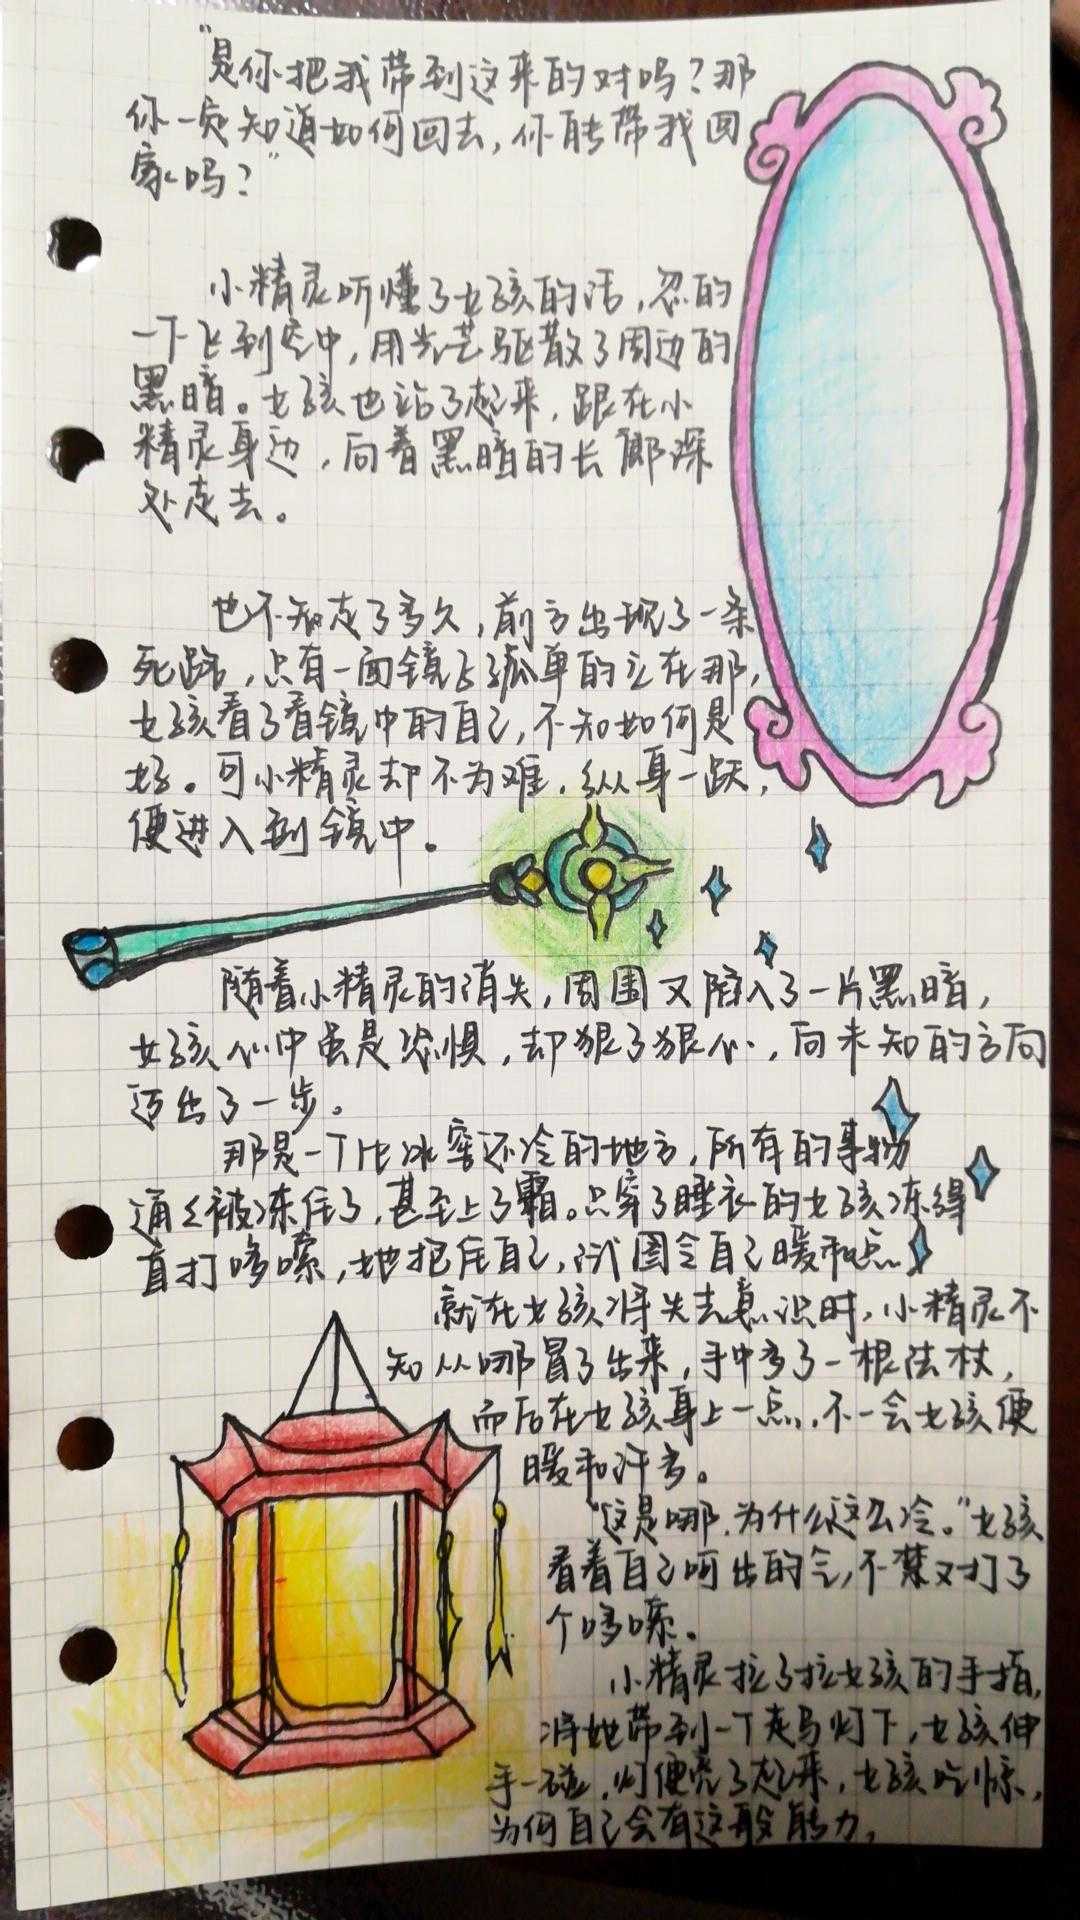 “是你把我带到这来的对吗？那
你一定知道如何回去，你能带我回
家吗？”
小精灵听懂了女孩的话，忽的
一下飞到空中，用光芒驱散了周边的
黑暗。女孩也站了起来，跟在小
精灵身边，向着黑暗的长廊深
处走去。
也不知走了多久，前方出现了一条
死路，只有一面镜子孤单的立在那，
女孩看了看镜中的自己，不知如何是
好。可小精灵却不为难，纵身一跃，
便进入到镜中。
随着小精灵的消失，周围又陷入了一片黑暗，
女孩心中虽是恐惧，却狠了狠心，向未知的方向
迈出了一步。
那是一个比冰窖还冷的地方，所有的事物
通通被冻住了，甚至上了霜。只穿了睡衣的女孩冻得
直打哆嗦，她抱住自己，试图令自己暖和点。
就在女孩将失去意识时，小精灵不
知从哪冒了出来，手中多了一根法杖，
而后在女孩身上一点，不一会女孩便
暖和许多。
“这是哪，为什么这么冷。”女孩
看着自己呵出的气，不禁又打了
个哆嗦。
小精灵拉了拉女孩的手指，
将她带到一个走马灯下，女孩伸
手一碰，灯便亮了起来，女孩吃惊，
为何自己会有这般能力，